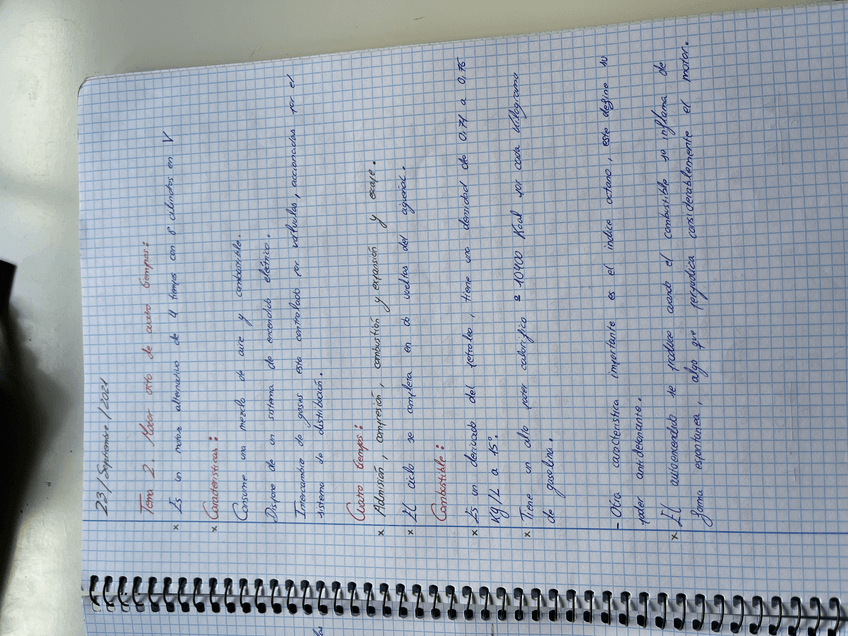 23/Septiembre/2021
Tema 2. Motor otto de cuatro tiempos:
x Es un motor alternativo de 4 tiempos con 8 cilindros en V
x Caracteristicas:
Consume una mezcla de aire y combustible.
Dispone de un sistema de encendido eléctrico.
Intercambio de gases esta controlado por valvulas, accionadas por el
sistema de distribución.
Cuatro tiempos:
x Admisión, compresión, combustión y expansión y escape.
x El ciclo se completa en do vueltas del cigueñal.
Combustible:
x Es un derivado del petroleo, tiene una densidad de 0.71 a 0.76
Kg/L a 15º
x Tiene un alto poder calorífico a 10400 Kcal por cada kilogramo
de gasolina.
- Otra caracteristica importante es el indice octano, este define su
poder antidetonante.
x El autoencendido se produce cuando el combustible se inflama de
forma espontanea, algo que perjudica considerablemente el motor.